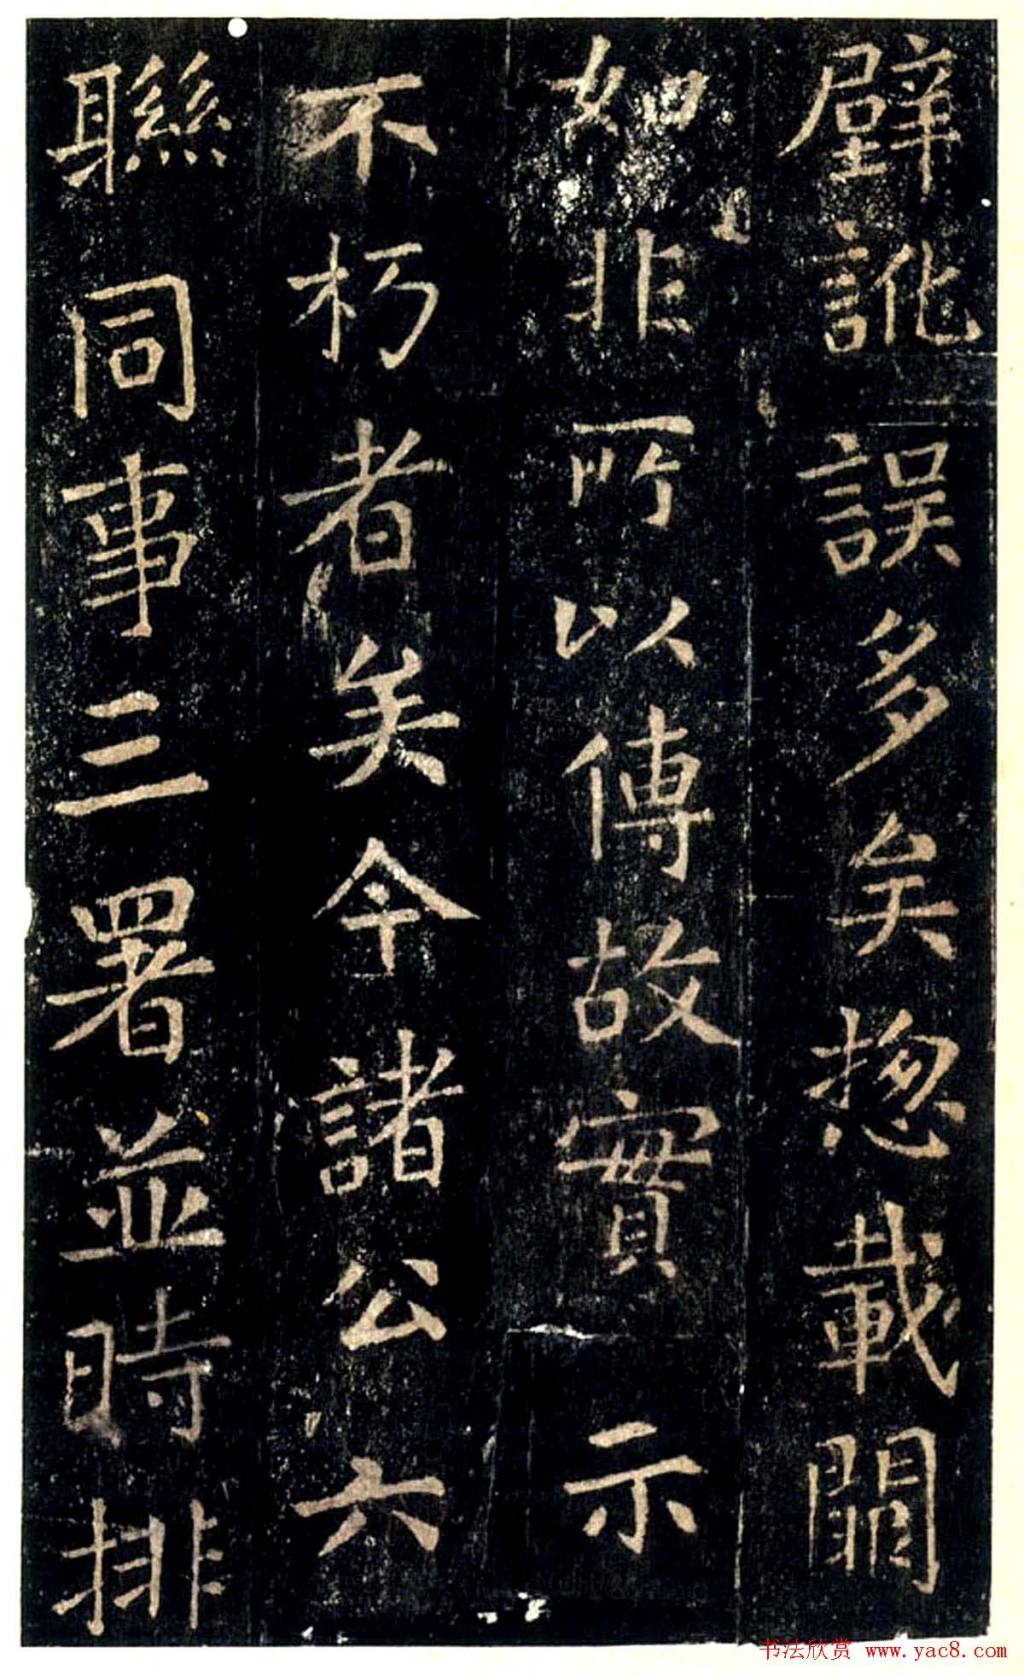 壁訛誤多矣惣載闕
如非所以傳故實示
不朽者矣今諸公六
聯同事三署並時排
书法欣赏 www.yac8.com